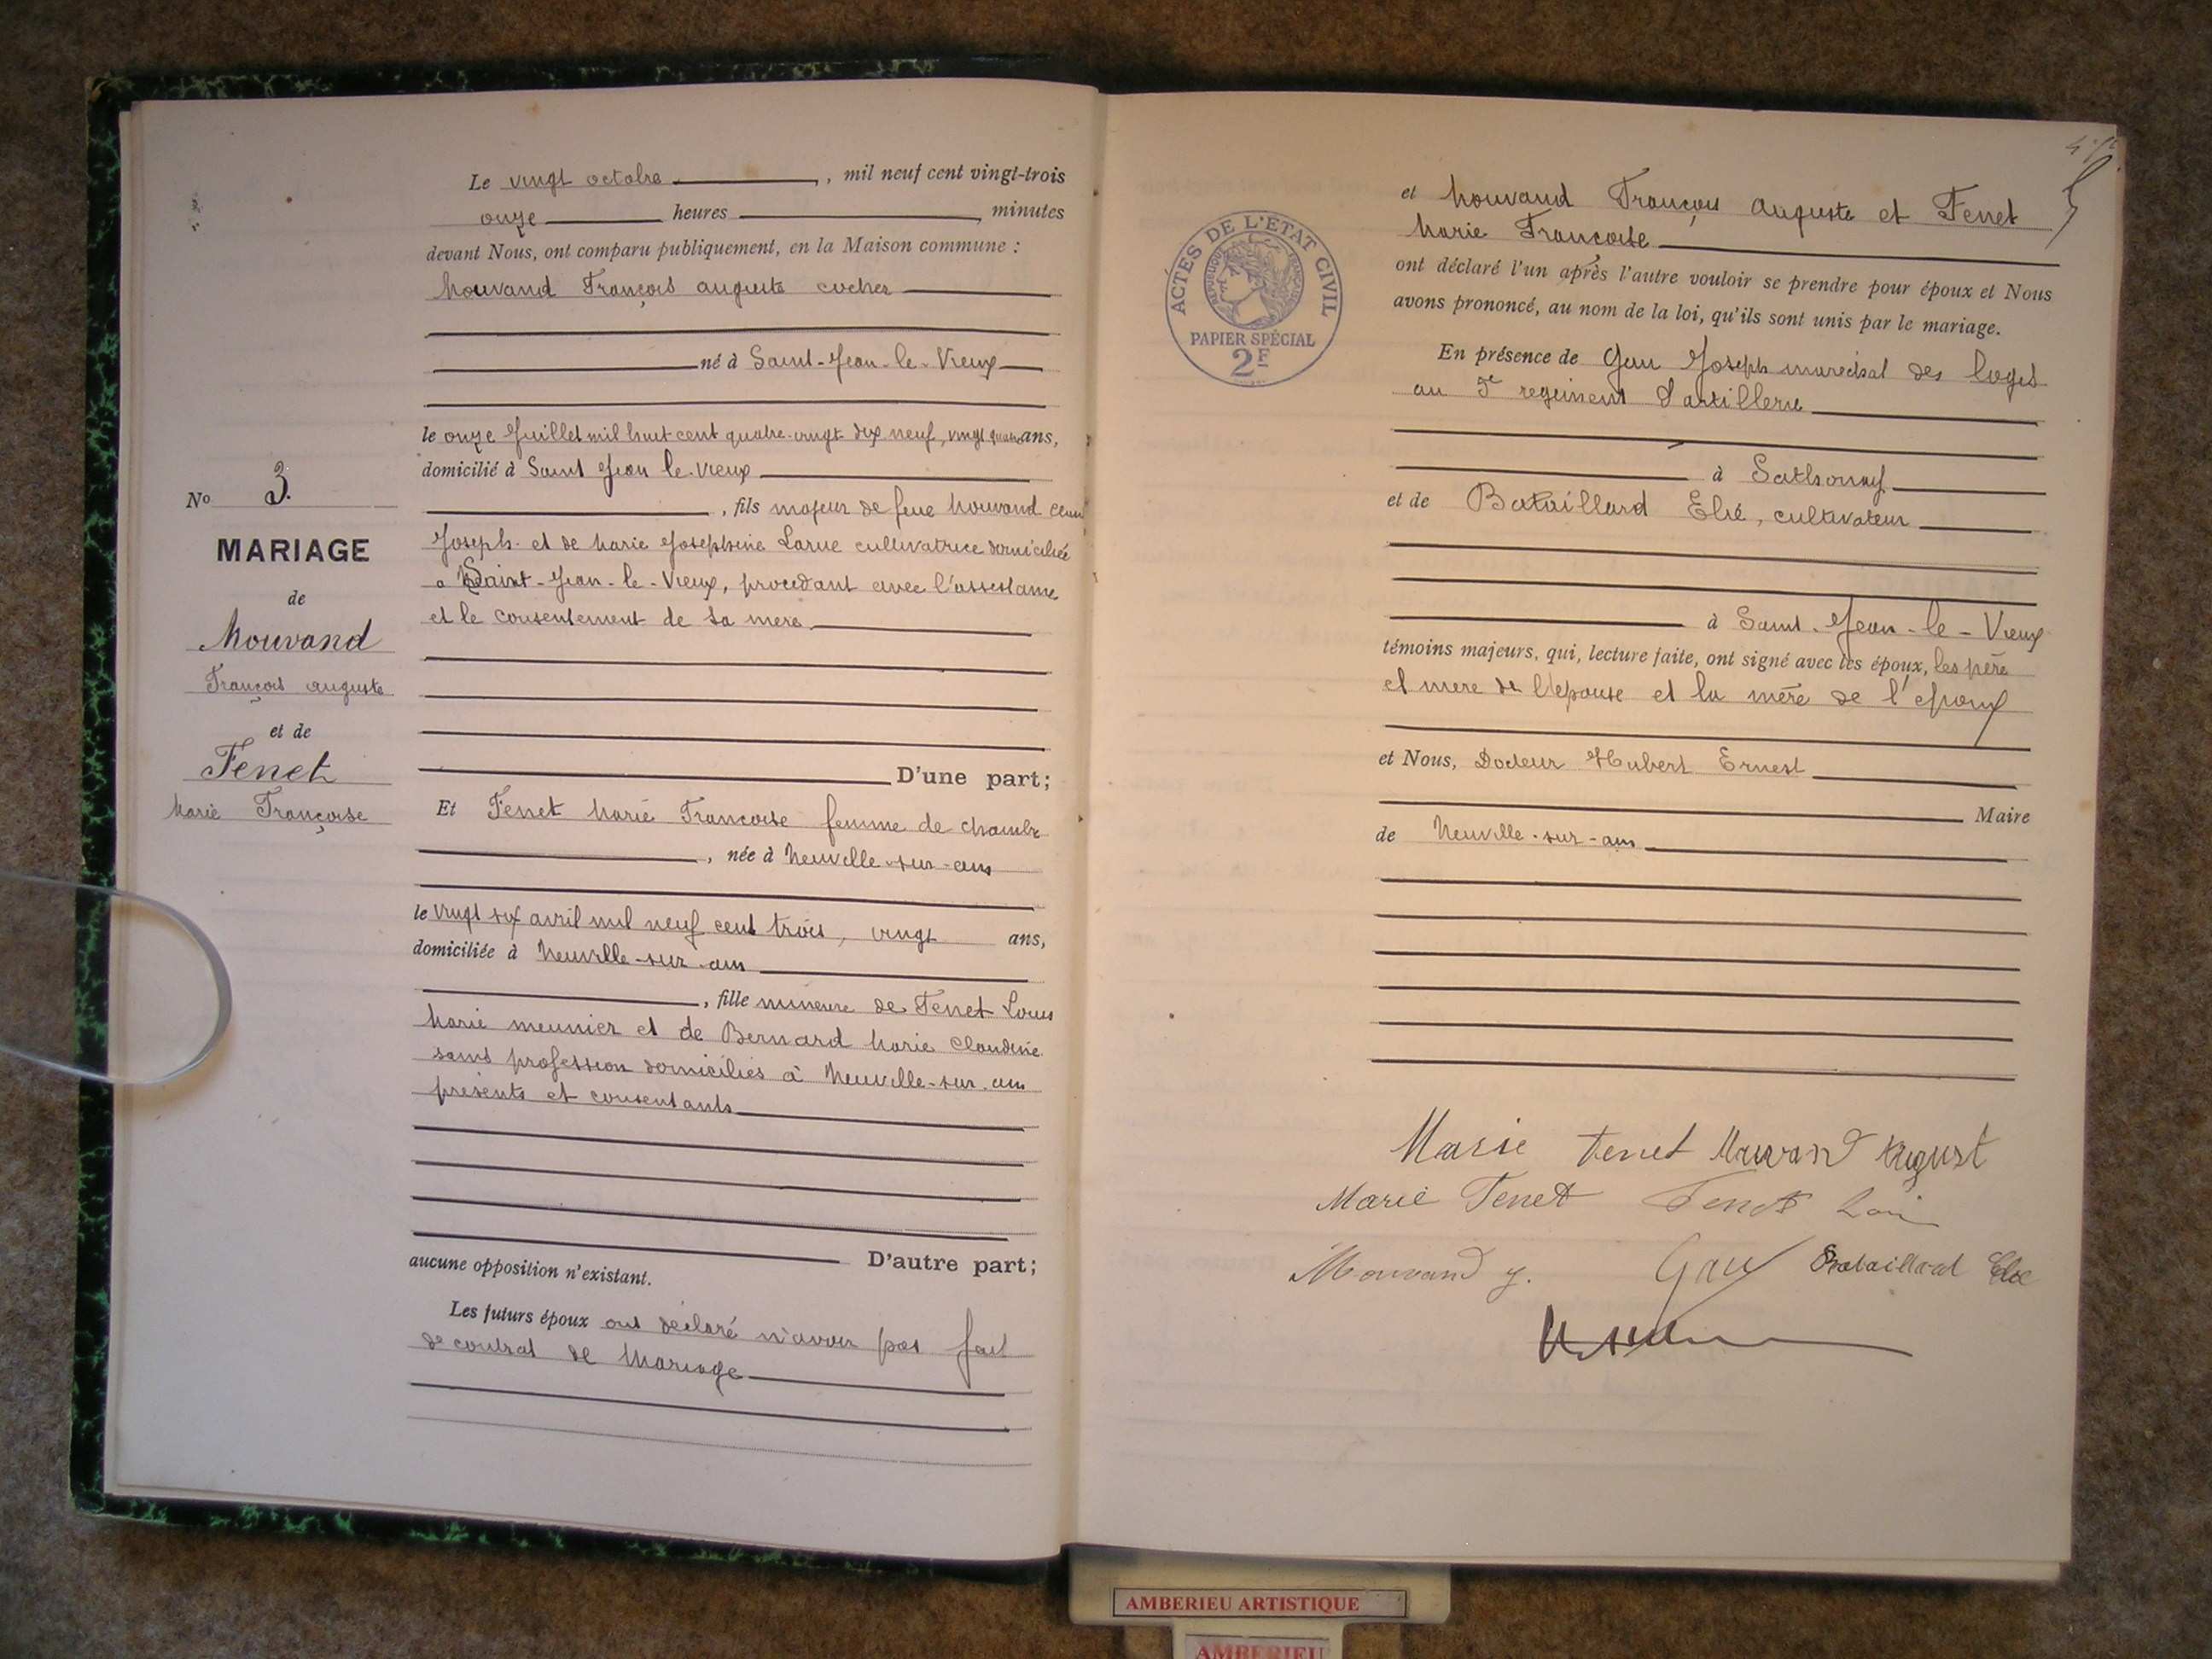 Le vingt octobre, mil neuf cent vingt-trois
onze heures minutes
devant Nous, ont comparu publiquement, en la Maison commune :
Mouvand François auguste cocher
né à Saint-Jean-le-Vieux
le onze Juillet mil huit cent quatre-vingt dix neuf, vingt quatre ans,
domicilié à Saint Jean le-Vieux
, fils majeur de feue Mouvand
Joseph et de Marie Josephine Larue cultivatrice domiciliée
a Saint-Jean-le-Vieux, procedant avec l'assestame
et le consentement de sa mere
No 3.
MARIAGE
de
Mouvand
François auguste
et de
Tenet
Marie Françoise
D'une part;
Et Tenet Marie Francoise femme de chambre
, née à Neuville-sur-ain
le vingt six avril mil neuf cent trois, vingt ans,
domiciliée à Neuville-sur-ain
, fille mineure de Tenet Louis
Marie meunier et de Bernard Marie Claudine
sans profession domiciliés à Neuville-sur-ain
présents et consentants
D'autre part;
aucune opposition n'existant.
Les futurs époux ont déclaré n'avoir pas fait
de contrat de Mariage
et Mouvand François Auguste et Tenet
Marie Francoise
ont déclaré l'un après l'autre vouloir se prendre pour époux et Nous
avons prononcé, au nom de la loi, qu'ils sont unis par le mariage.
ACTES DE L'ETAT CIVIL
REPUBLIQUE FRANCAISE
PAPIER SPÉCIAL
2F
En présence de Gau Joseph marechal des logis
au 5e regiment d'artillerie
à Sathonay
et de Bataillard Elié, cultivateur
à Saint-Jean-le-Vieux
témoins majeurs, qui, lecture faite, ont signé avec les époux, les père
et mere de l'epouse et la mère de l'epoux
et Nous, Docteur Hubert Ernest
Maire
de Neuville-sur-ain
Marie Tenet Mouvand August
Marie Tenet Tenet
Mouvand J. Gau Bataillard Elie
AMBERIEU ARTISTIQUE
AMBERIEU